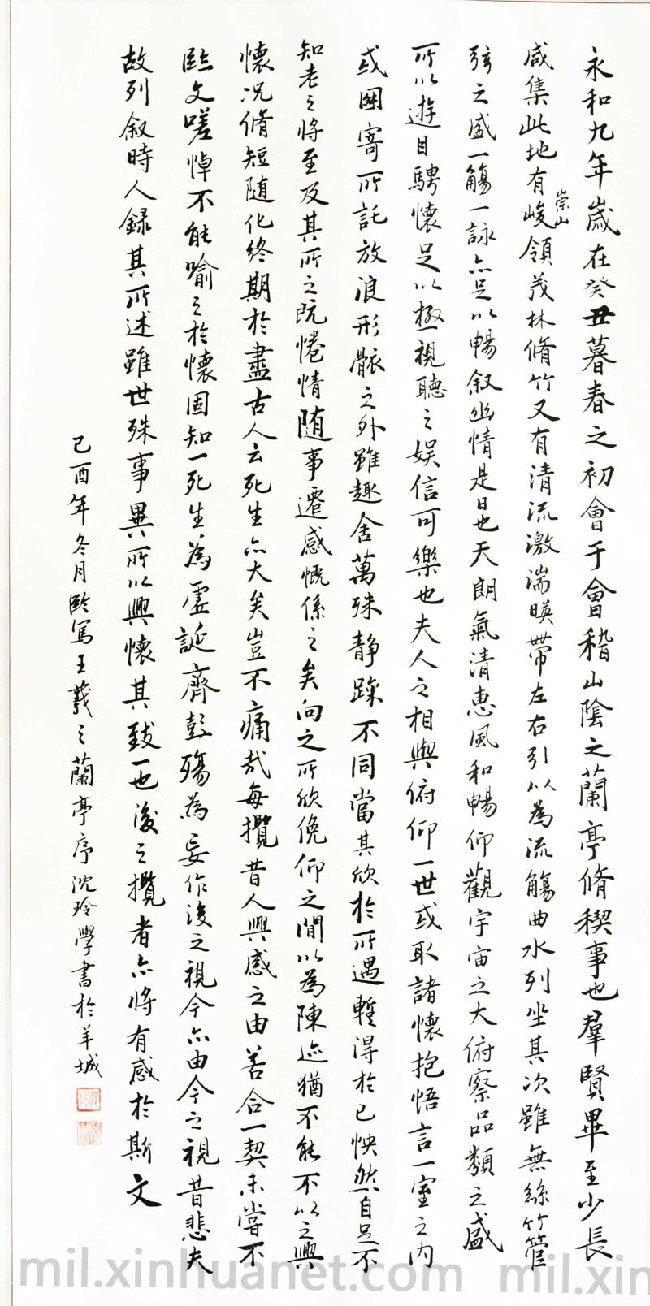 永和九年歲在癸丑暮春之初會于會稽山陰之蘭亭脩稧事也羣賢畢至少長
咸集此地有崇山峻領茂林脩竹又有清流激湍暎帶左右引以為流觴曲水列坐其次雖無絲竹管
弦之盛一觴一詠亦足以暢叙幽情是日也天朗氣清惠風和暢仰觀宇宙之大俯察品類之盛
所以遊目騁懷足以極視聽之娱信可樂也夫人之相與俯仰一世或取諸懷抱悟言一室之內
或因寄所託放浪形骸之外雖趣舍萬殊静躁不同當其欣於所遇蹔得於己怏然自足不
知老之將至及其所之既惓情随事遷感慨係之矣向之所欣俛仰之間以為陳迹猶不能不以之興
懷況脩短随化終期於盡古人云死生亦大矣豈不痛哉每攬昔人興感之由若合一契未嘗不
臨文嗟悼不能喻之於懷固知一死生為虛誕齊彭殤為妄作後之視今亦由今之視昔悲夫
故列叙時人録其所述雖世殊事異所以興懷其致一也後之攬者亦將有感於斯文
己酉年冬月臨寫王羲之蘭亭序沈玲學書於羊城
mil.xinhuanet.com
mil.xin